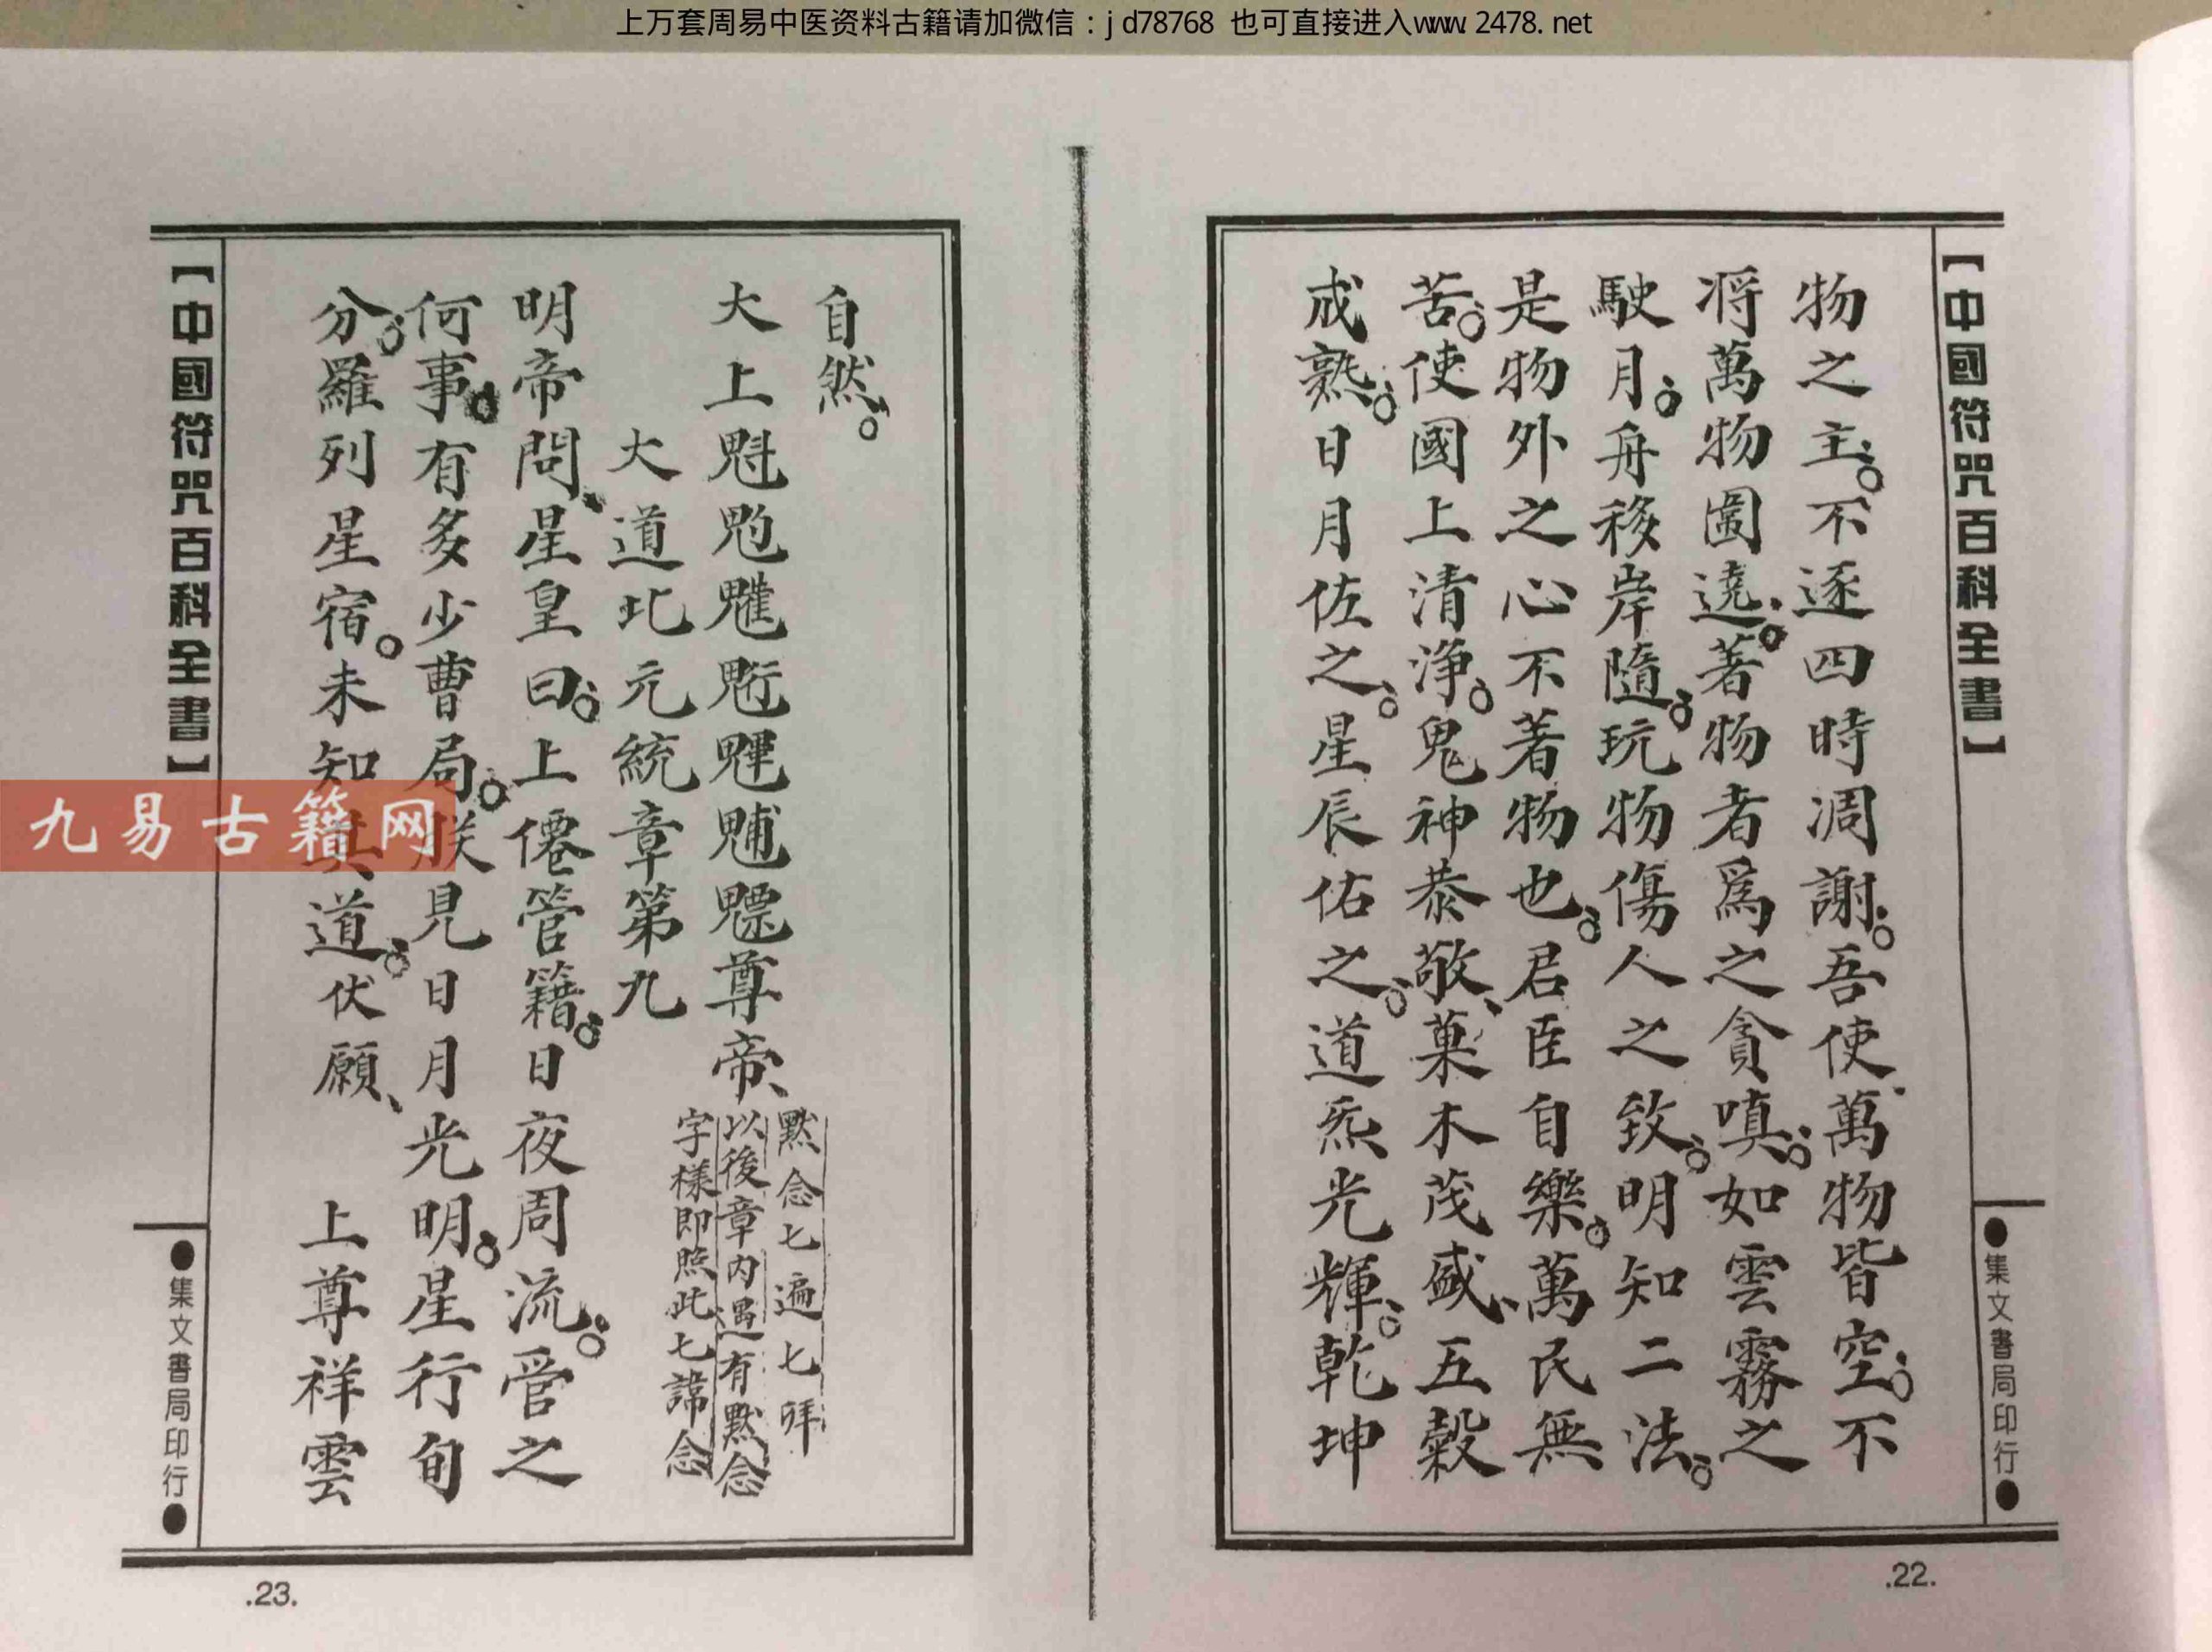 上万套周易中医资料古籍请加微信：jd78768 也可直接进入www.2478.net
【中國符咒百科全書】
●集文書局印行●
物之主。不逐四時凋謝。吾使萬物皆空。不
將萬物圖遶。著物者爲之貪嗔。如雲霧之
駛月。舟移岸隨。玩物傷人之致。明知二法。
是物外之心不著物也。君臣自樂。萬民無
苦。使國上清淨。鬼神恭敬、菓木茂盛、五穀
成熟。日月佐之。星辰佑之。道炁光輝。乾坤
.22.
自然。
大上魁𩲃䰢魓𩵄尊帝、
默念七遍七拜
以後章内遇有默念
字樣即照此七諱念
大道北元統章第九
明帝問、星皇曰。上僊管籍。日夜周流。管之
何事。有多少曹局。朕見日月光明。星行旬
分。羅列星宿。未知其道。伏願、 上尊祥雲
【中國符咒百科全書】
●集文書局印行●
.23.
九易古籍网